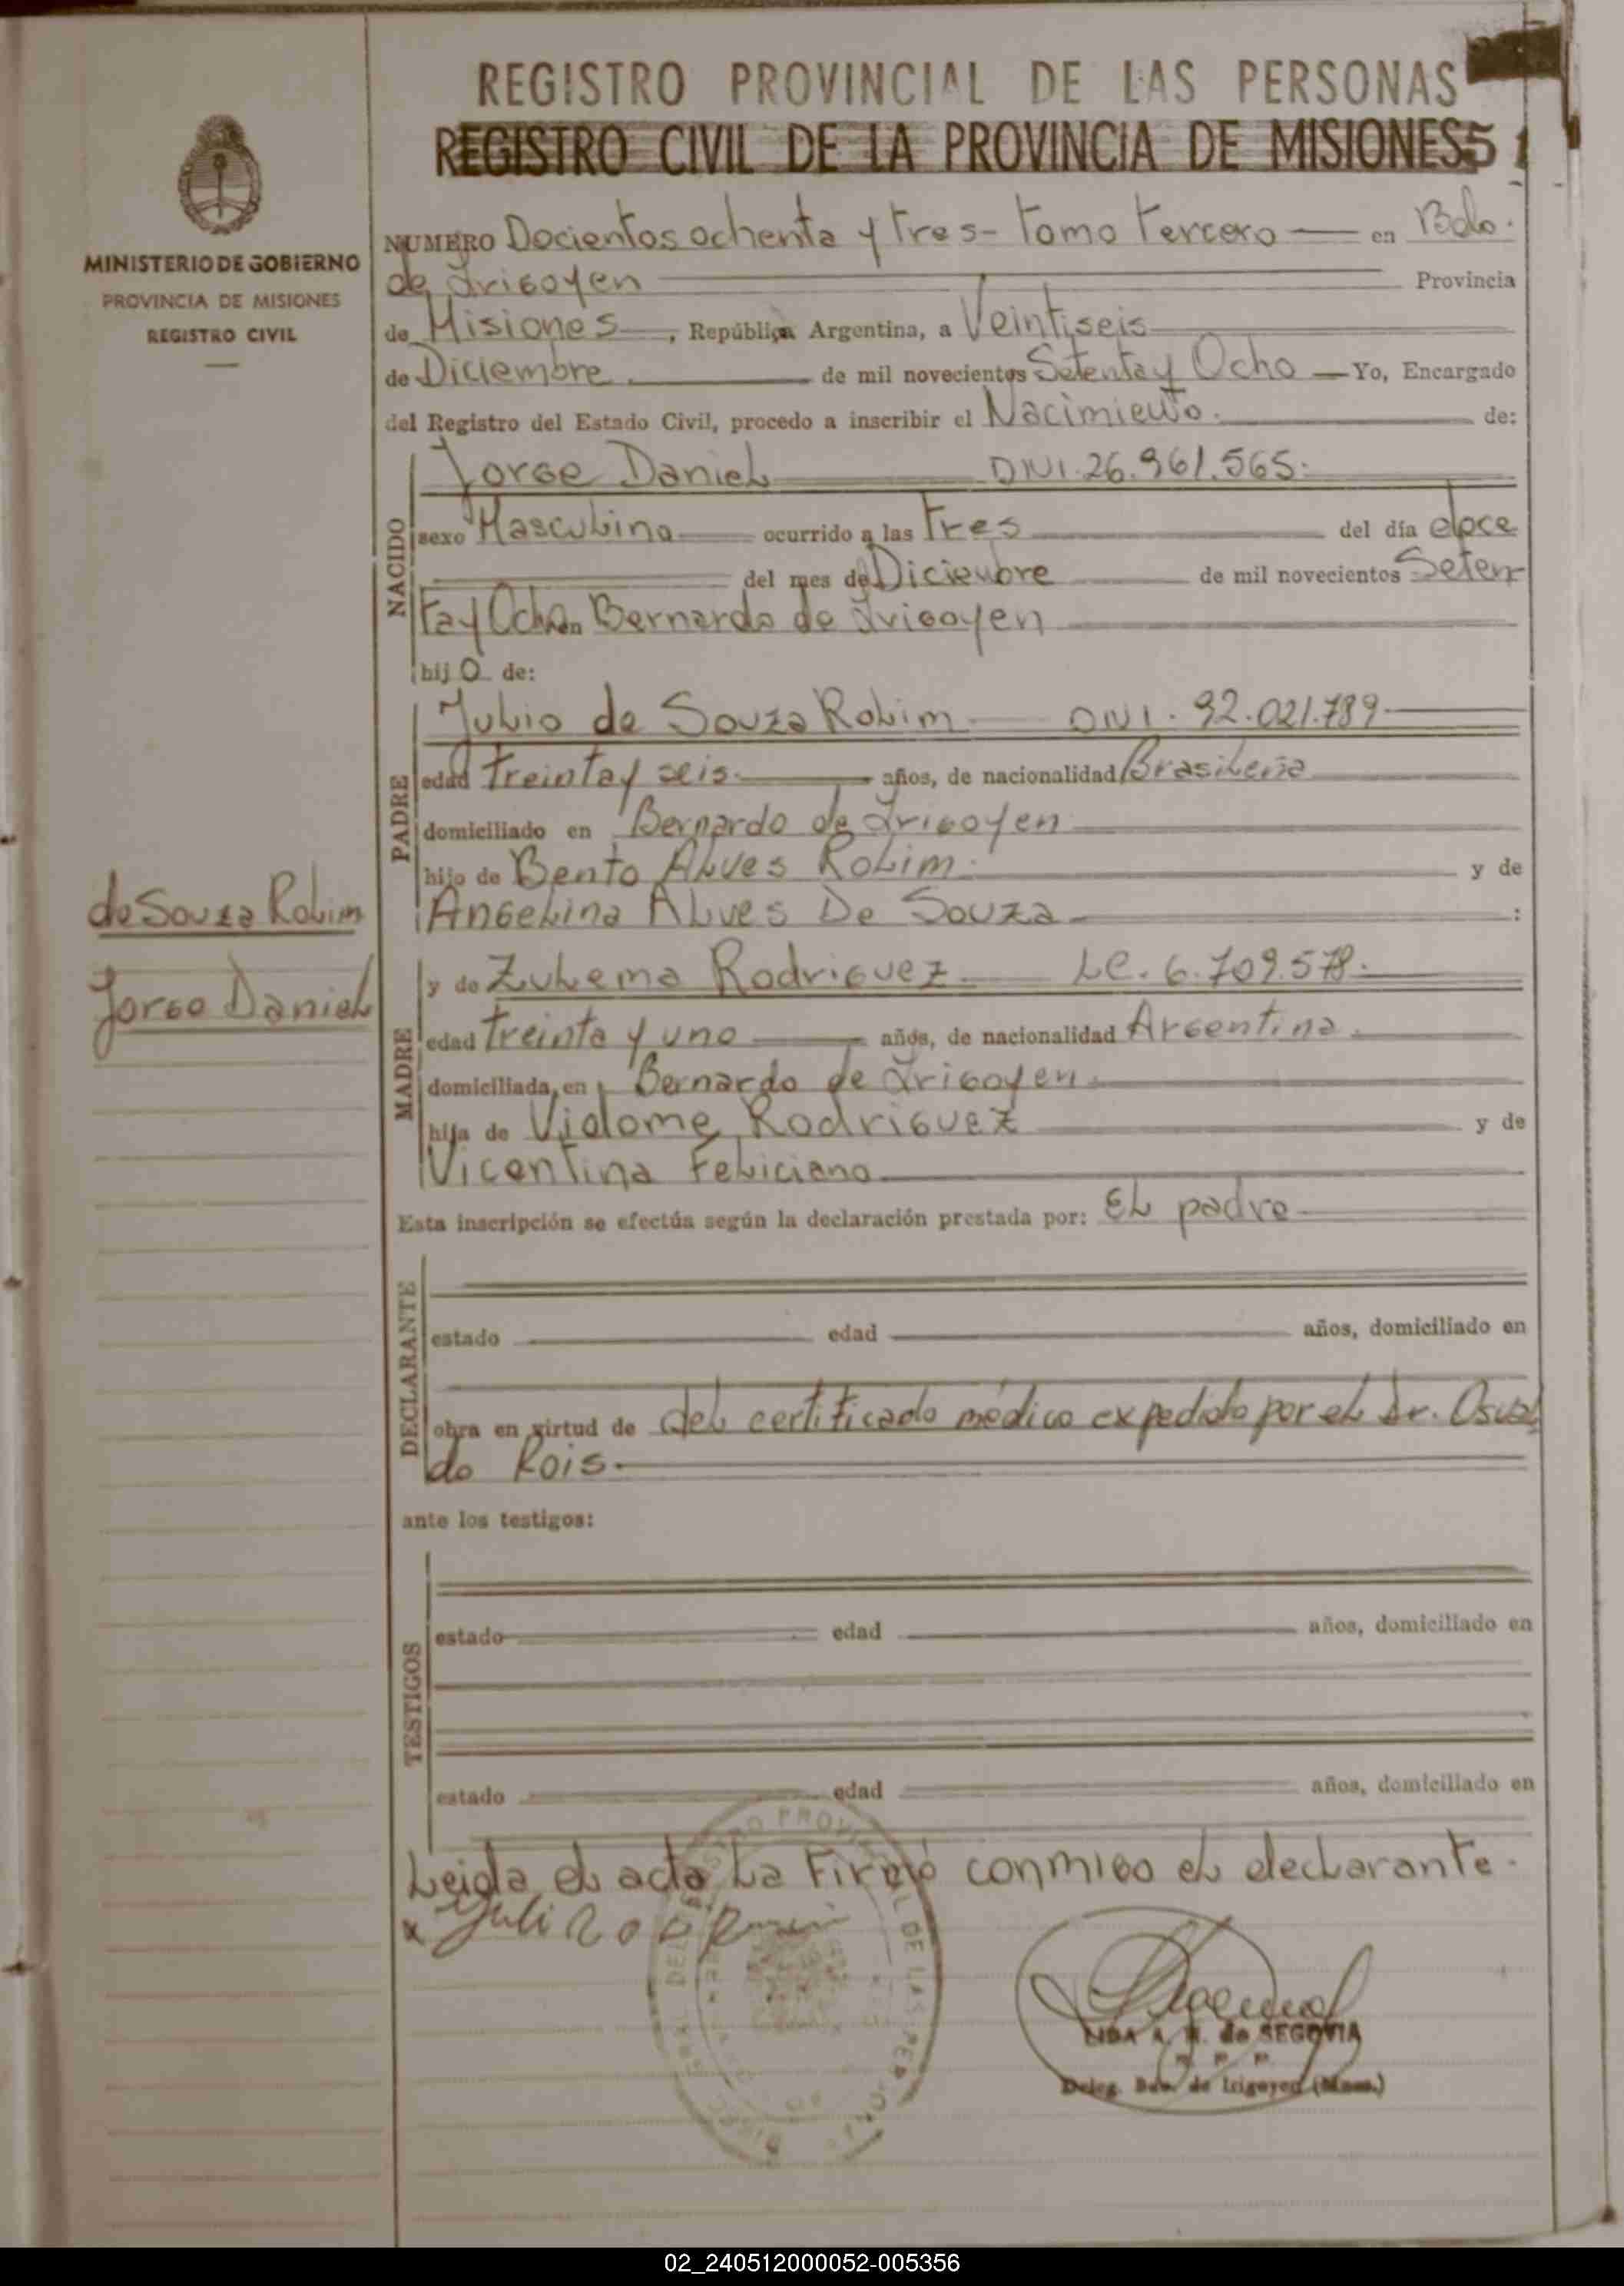 REGISTRO PROVINCIAL DE LAS PERSONAS
REGISTRO CIVIL DE LA PROVINCIA DE MISIONES
MINISTERIO DE GOBIERNO
PROVINCIA DE MISIONES
REGISTRO CIVIL
NUMERO Docientos ochenta y tres - Tomo Tercero en Bdo.
de Irigoyen Provincia
de Misiones, República Argentina, a Veintiseis
de Diciembre de mil novecientos Setenta y Ocho Yo, Encargado
del Registro del Estado Civil, procedo a inscribir el Nacimiento. de:
NACIDO
Jorge Daniel DNI. 26.961.565.
sexo Masculino ocurrido a las Tres del día doce
del mes de Diciembre de mil novecientos Seten
ta y Ocho en Bernardo de Irigoyen
hijo de:
PADRE
Julio de Souza Rolim DNI. 92.021.789
edad Treinta y seis años, de nacionalidad Brasileña
domiciliado en Bernardo de Irigoyen
hijo de Bento Alves Rolim y de
Angelina Alves De Souza :
de Souza Rolim
Jorge Daniel
MADRE
y de Zulema Rodriguez LC. 6.709.578.
edad Treinta y uno años, de nacionalidad Argentina
domiciliada en Bernardo de Irigoyen
hija de Vidome Rodriguez y de
Vicentina Feliciano
Esta inscripción se efectúa según la declaración prestada por: El padre
DECLARANTE
estado edad años, domiciliado en
obra en virtud de del certificado médico expedido por el Dr. Osval
do Rois.
ante los testigos:
TESTIGOS
estado edad años, domiciliado en
estado edad años, domiciliado en
Leida el acta La Firmó conmigo el declarante.
LIDA A. de SEGOVIA
Deleg. Bdo. de Irigoyen (Mnes.)
02_240512000052-005356